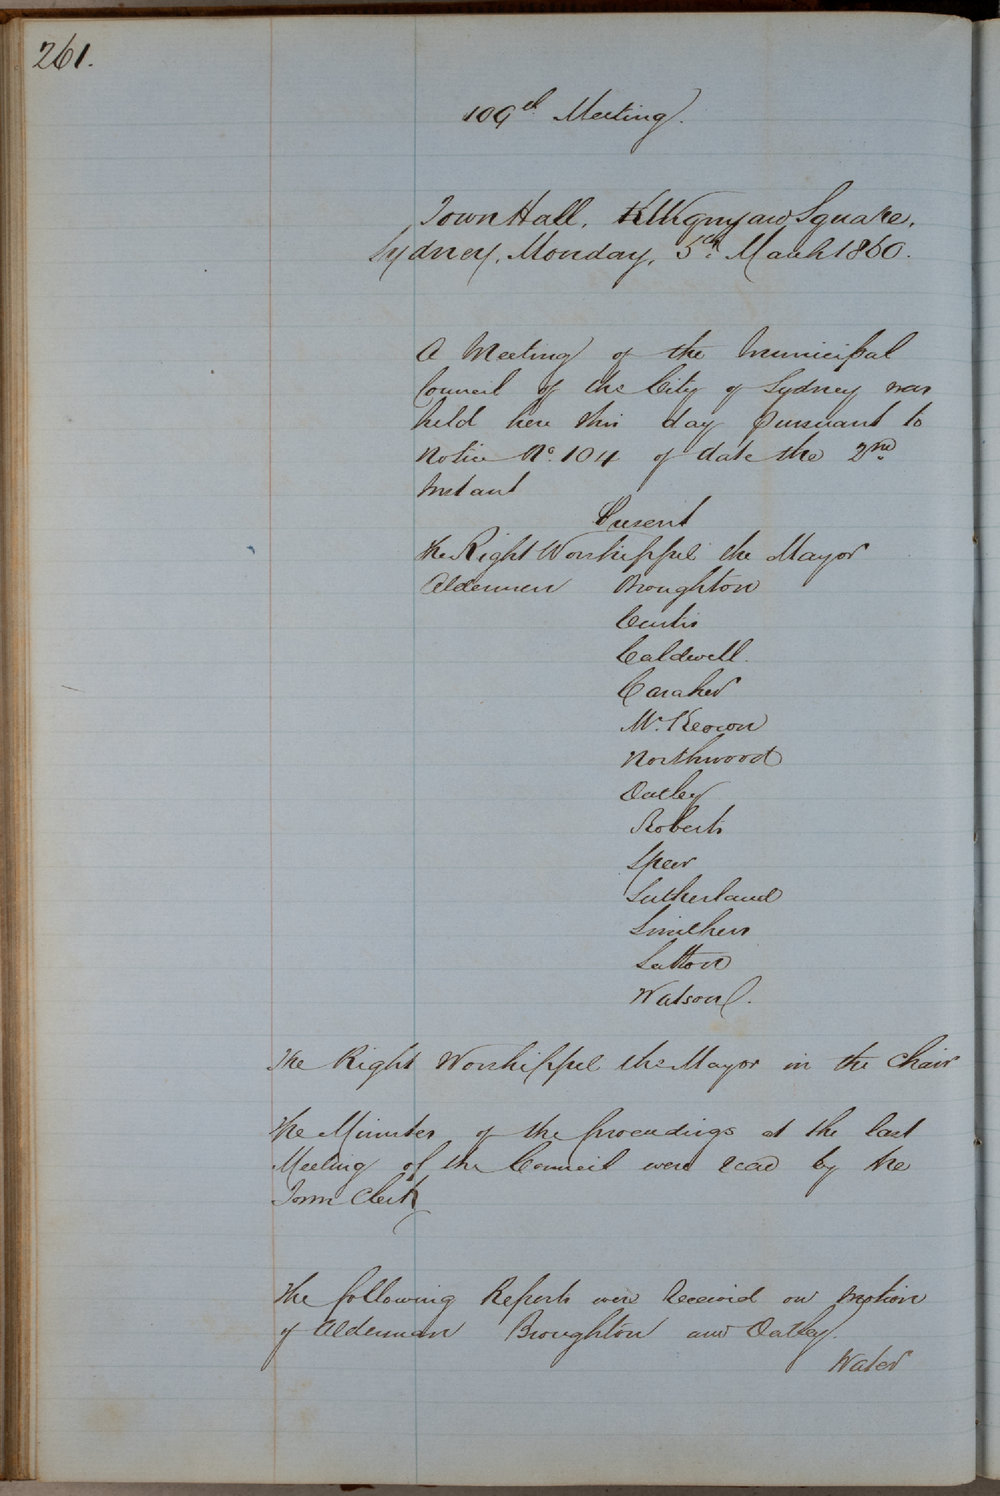 261.
109th Meeting.
Town Hall, Wynyard Square,
Sydney, Monday, 5th March 1860.
A Meeting of the Municipal
Council of the City of Sydney was
held here this day pursuant to
Notice No. 104 of date the 2nd
Instant
Present
The Right Worshipful the Mayor
Aldermen Broughton
Curtis
Caldwell.
Caraher
Mc. Keown
Northwood
Oatley
Roberts
Speer
Sutherland
Smithers
Sutton
Watson.
The Right Worshipful the Mayor in the Chair
The Minutes of the proceedings at the last
Meeting of the Council were read by the
Town Clerk
The following Reports were received on motion
of Alderman Broughton and Oatley.
Water